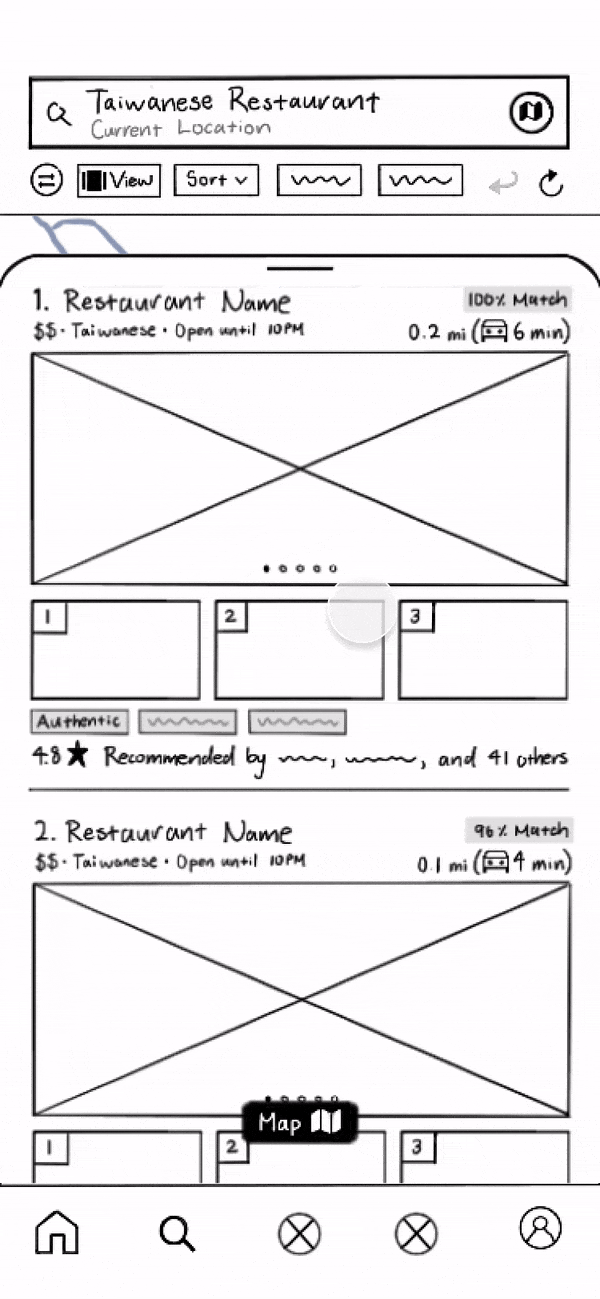 Taiwanese Restaurant
Current Location
View Sort
1. Restaurant Name 100% Match
$$ · Taiwanese · Open until 10PM 0.2 mi (6 min)
1 2 3
Authentic
4.8 ★ Recommended by , , and 41 others
2. Restaurant Name 96% Match
$$ · Taiwanese · Open until 10PM 0.1 mi (4 min)
Map
1 2 3